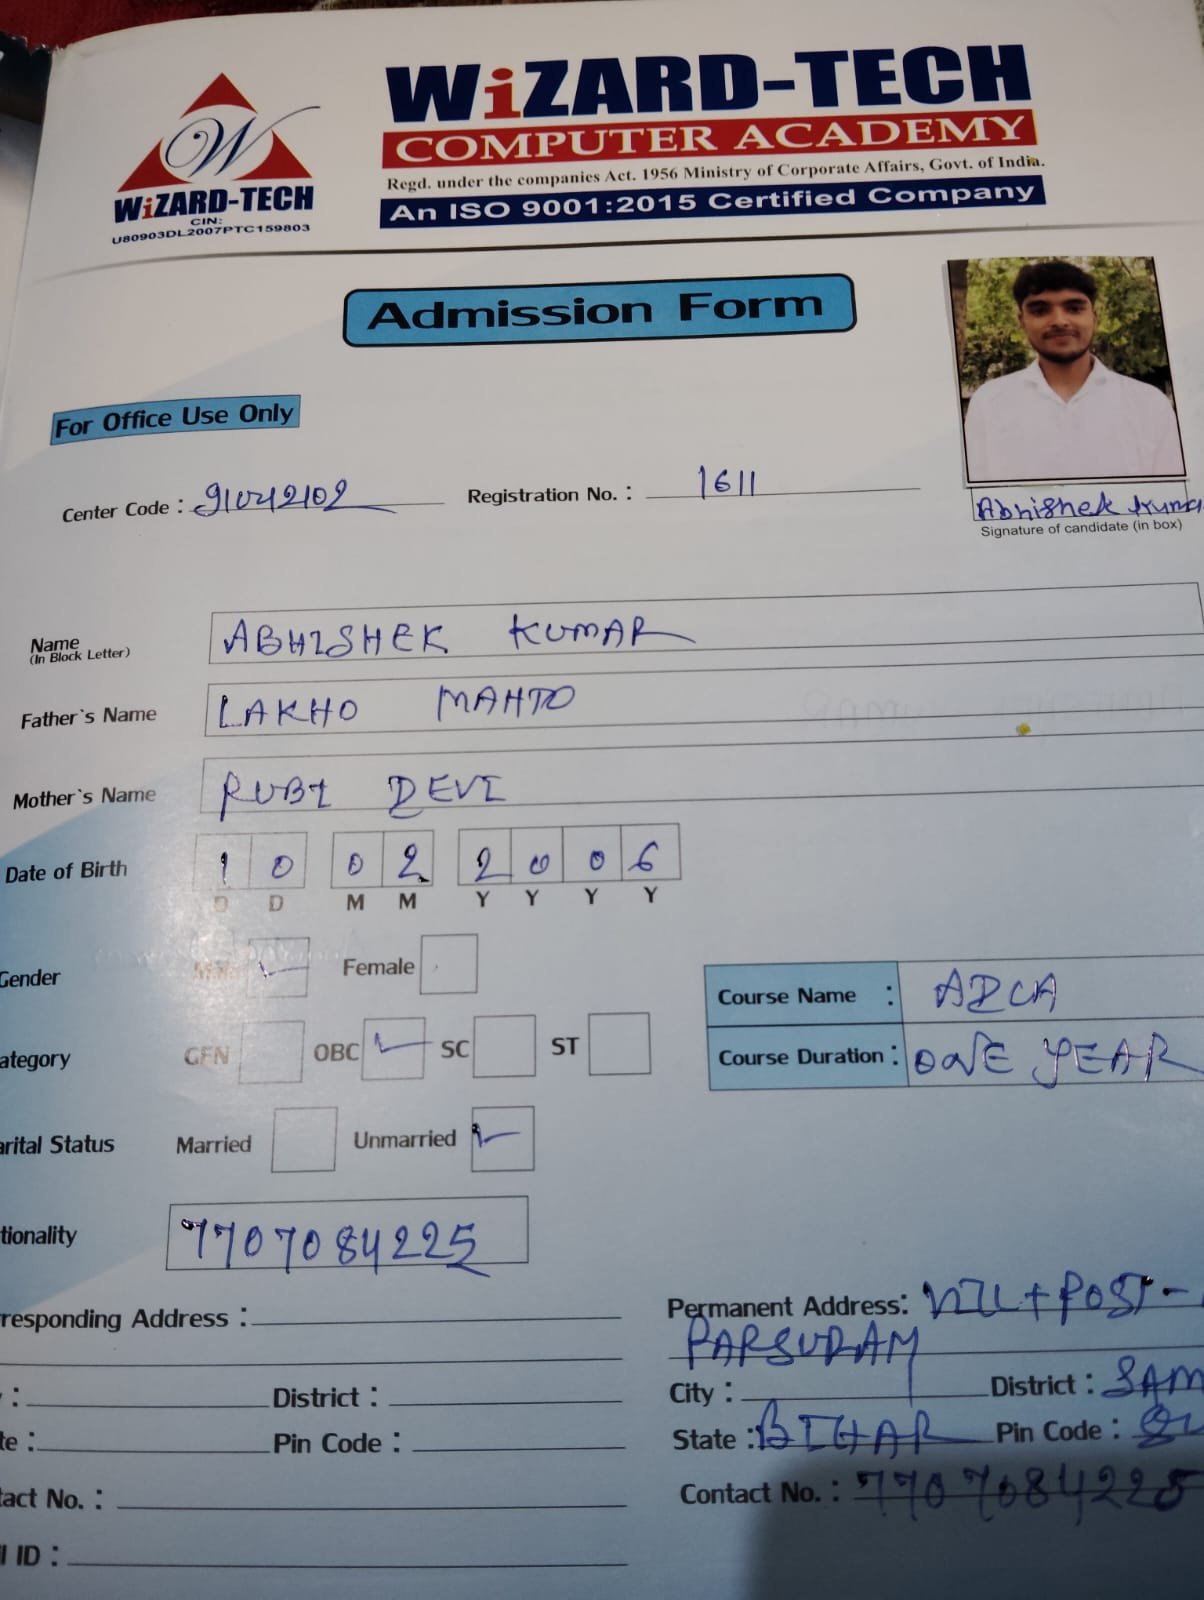 WiZARD-TECH
COMPUTER ACADEMY
Regd. under the companies Act. 1956 Ministry of Corporate Affairs, Govt. of India.
An ISO 9001:2015 Certified Company
W
WiZARD-TECH
CIN:
U80903DL2007PTC159803
Admission Form
For Office Use Only
Center Code : 91042102 Registration No. : 1611
Abhishek Kuma
Signature of candidate (in box)
Name ABHISHEK KUMAR
(In Block Letter)
Father`s Name LAKHO MAHTO
Mother`s Name RUBI DEVI
Date of Birth 10 02 2006
D D M M Y Y Y Y
Gender Male Female
ategory GEN OBC SC ST
Course Name : ADCA
Course Duration : ONE YEAR
arital Status Married Unmarried
tionality 7707084225
rresponding Address : Permanent Address: VILL + POST -
PARSURAM
: District : City : District : SAM
te : Pin Code : State : BIHAR Pin Code :
tact No. : Contact No. : 7707084225
l ID :